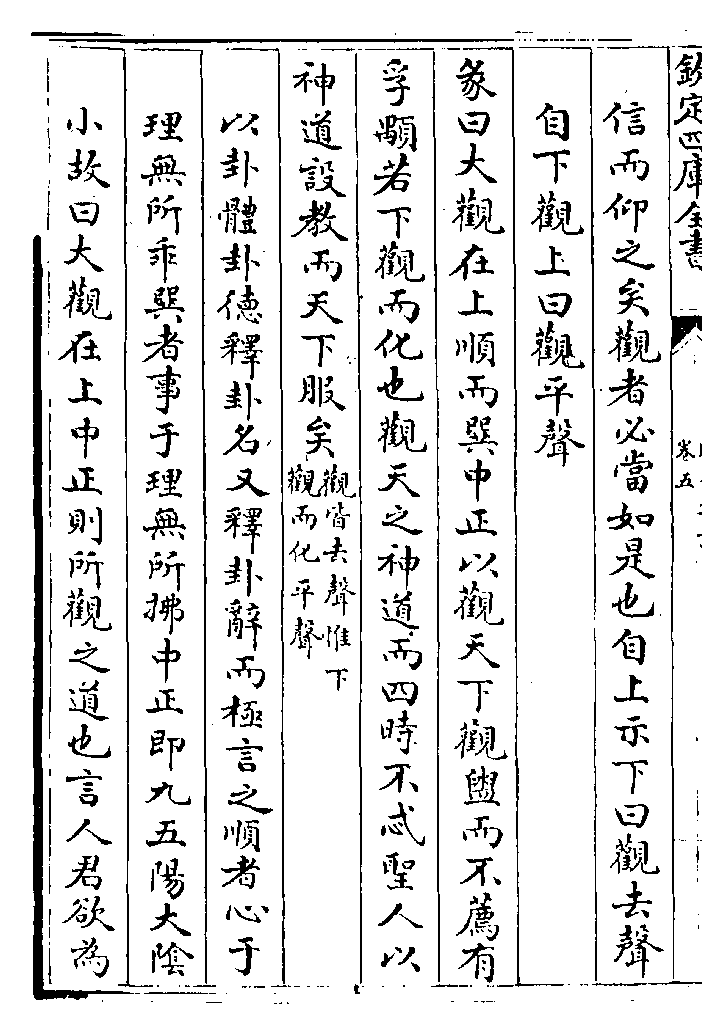 欽定四庫全書
卷五
信而仰之矣觀者必當如是也自上示下曰觀去聲
自下觀上曰觀平聲
彖曰大觀在上順而巽中正以觀天下觀盥而不薦有
孚顒若下觀而化也觀天之神道而四時不忒聖人以
神道設教而天下服矣
觀皆去聲惟下
觀而化平聲
以卦體卦德釋卦名又釋卦辭而極言之順者心于
理無所乖巽者事于理無所拂中正即九五陽大陰
小故曰大觀在上中正則所觀之道也言人君欲為